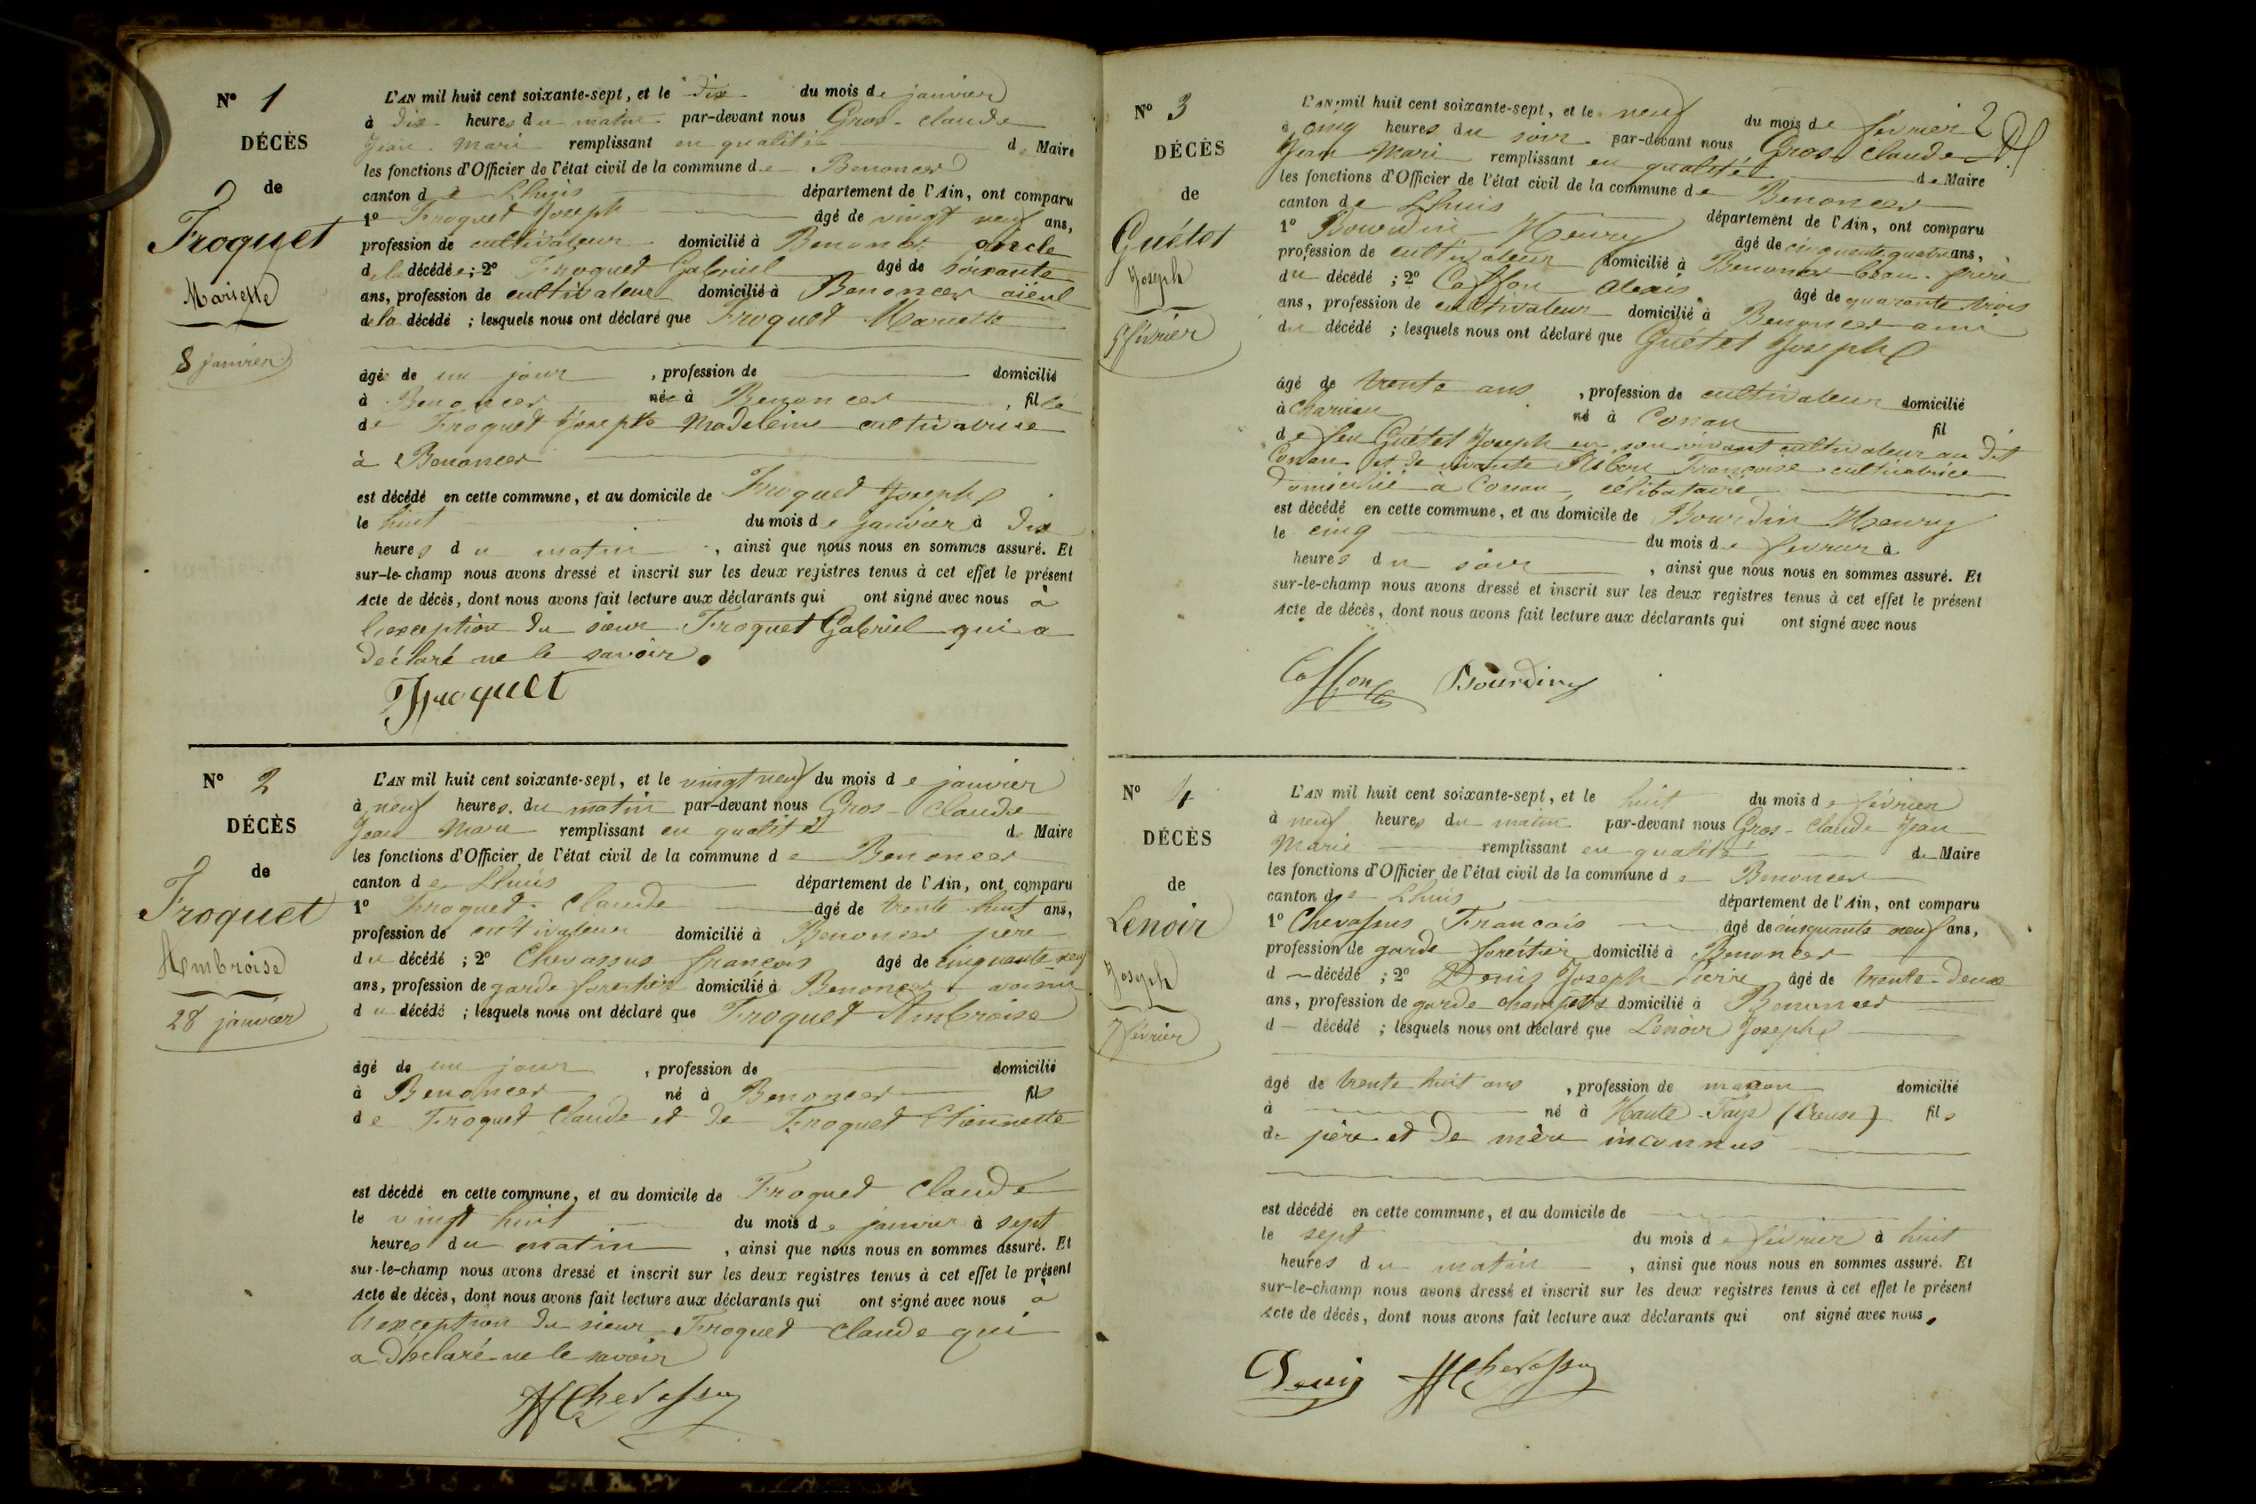 N° 1
DÉCÈS
de
Froquet
Mariette
8 janvier
L'AN mil huit cent soixante-sept, et le dix du mois de janvier
à dix heures du matin par-devant nous Gros-Claude
Jean Mari remplissant en qualité de Maire
les fonctions d'Officier de l'état civil de la commune de Benonces
canton de Lhuis département de l'Ain, ont comparu
1° Froquet Joseph âgé de vingt neuf ans,
profession de cultivateur domicilié à Benonces oncle
de la décédée ; 2° Froquet Gabriel âgé de soixante
ans, profession de cultivateur domicilié à Benonces aïeul
de la décédé ; lesquels nous ont déclaré que Froquet Mariette
âgé de un jour , profession de domicilié
à Benonces née à Benonces , fille
de Froquet Josephte Madeleine cultivatrice
à Benonces
est décédé en cette commune, et au domicile de Froquet Joseph
le huit du mois de janvier à dix
heures du matin , ainsi que nous nous en sommes assuré. Et
sur-le-champ nous avons dressé et inscrit sur les deux registres tenus à cet effet le présent
Acte de décès, dont nous avons fait lecture aux déclarants qui ont signé avec nous à
l'exception du sieur Froquet Gabriel qui a
déclaré ne le savoir.
Froquet
N° 2
DÉCÈS
de
Froquet
Ambroise
28 janvier
L'AN mil huit cent soixante-sept, et le vingt neuf du mois de janvier
à neuf heures du matin par-devant nous Gros-Claude
Jean Marie remplissant en qualité de Maire
les fonctions d'Officier de l'état civil de la commune de Benonces
canton de Lhuis département de l'Ain, ont comparu
1° Froquet Claude âgé de trente huit ans,
profession de cultivateur domicilié à Benonces père
du décédé ; 2° Chevassus françois âgé de cinquante neuf
ans, profession de garde forestier domicilié à Benonces voisin
du décédé ; lesquels nous ont déclaré que Froquet Ambroise
âgé de un jour , profession de domicilié
à Benonces né à Benonces fils
de Froquet Claude et de Froquet Etiennette
est décédé en cette commune, et au domicile de Froquet Claude
le vingt huit du mois de janvier à sept
heures du matin , ainsi que nous nous en sommes assuré. Et
sur-le-champ nous avons dressé et inscrit sur les deux registres tenus à cet effet le présent
Acte de décès, dont nous avons fait lecture aux déclarants qui ont signé avec nous à
l'exception du sieur Froquet Claude qui
a déclaré ne le savoir
Chevassus
2
N° 3
DÉCÈS
de
Guétet
Joseph
5 février
L'AN mil huit cent soixante-sept, et le neuf du mois de février
à cinq heures du soir par-devant nous Gros-Claude
Jean Mari remplissant en qualité de Maire
les fonctions d'Officier de l'état civil de la commune de Benonces
canton de Lhuis département de l'Ain, ont comparu
1° Bourdin Henry âgé de cinquante quatre ans,
profession de cultivateur domicilié à Benonces beau-frère
du décédé ; 2° Caffon Alexis âgé de quarante trois
ans, profession de cultivateur domicilié à Benonces ami
du décédé ; lesquels nous ont déclaré que Guétet Joseph
âgé de trente ans , profession de cultivateur domicilié
à né à Conan fil
de feu Guétet Joseph en son vivant cultivateur au dit
Conan et de vivante Françoise cultivatrice
domiciliée à Conan, célibataire
est décédé en cette commune, et au domicile de Bourdin Henry
le cinq du mois de février à
heures du soir , ainsi que nous nous en sommes assuré. Et
sur-le-champ nous avons dressé et inscrit sur les deux registres tenus à cet effet le présent
Acte de décès, dont nous avons fait lecture aux déclarants qui ont signé avec nous
Caffon Bourdin
N° 4
DÉCÈS
de
Lenoir
Joseph
7 février
L'AN mil huit cent soixante-sept, et le huit du mois de février
à neuf heures du matin par-devant nous Gros-Claude Jean
Marie remplissant en qualité de Maire
les fonctions d'Officier de l'état civil de la commune de Benonces
canton de Lhuis département de l'Ain, ont comparu
1° Chevassus Francois âgé de cinquante neuf ans,
profession de garde forestier domicilié à Benonces
d décédé ; 2° Denis Joseph Pierre âgé de trente-deux
ans, profession de garde champetre domicilié à Benonces
d décédé ; lesquels nous ont déclaré que Lenoir Joseph
âgé de trente huit ans , profession de maçon domicilié
à né à Haute-Faye (Creuse) fils
de père et de mère inconnus
est décédé en cette commune, et au domicile de
le sept du mois de février à huit
heures du matin , ainsi que nous nous en sommes assuré. Et
sur-le-champ nous avons dressé et inscrit sur les deux registres tenus à cet effet le présent
Acte de décès, dont nous avons fait lecture aux déclarants qui ont signé avec nous.
Denis Chevassus